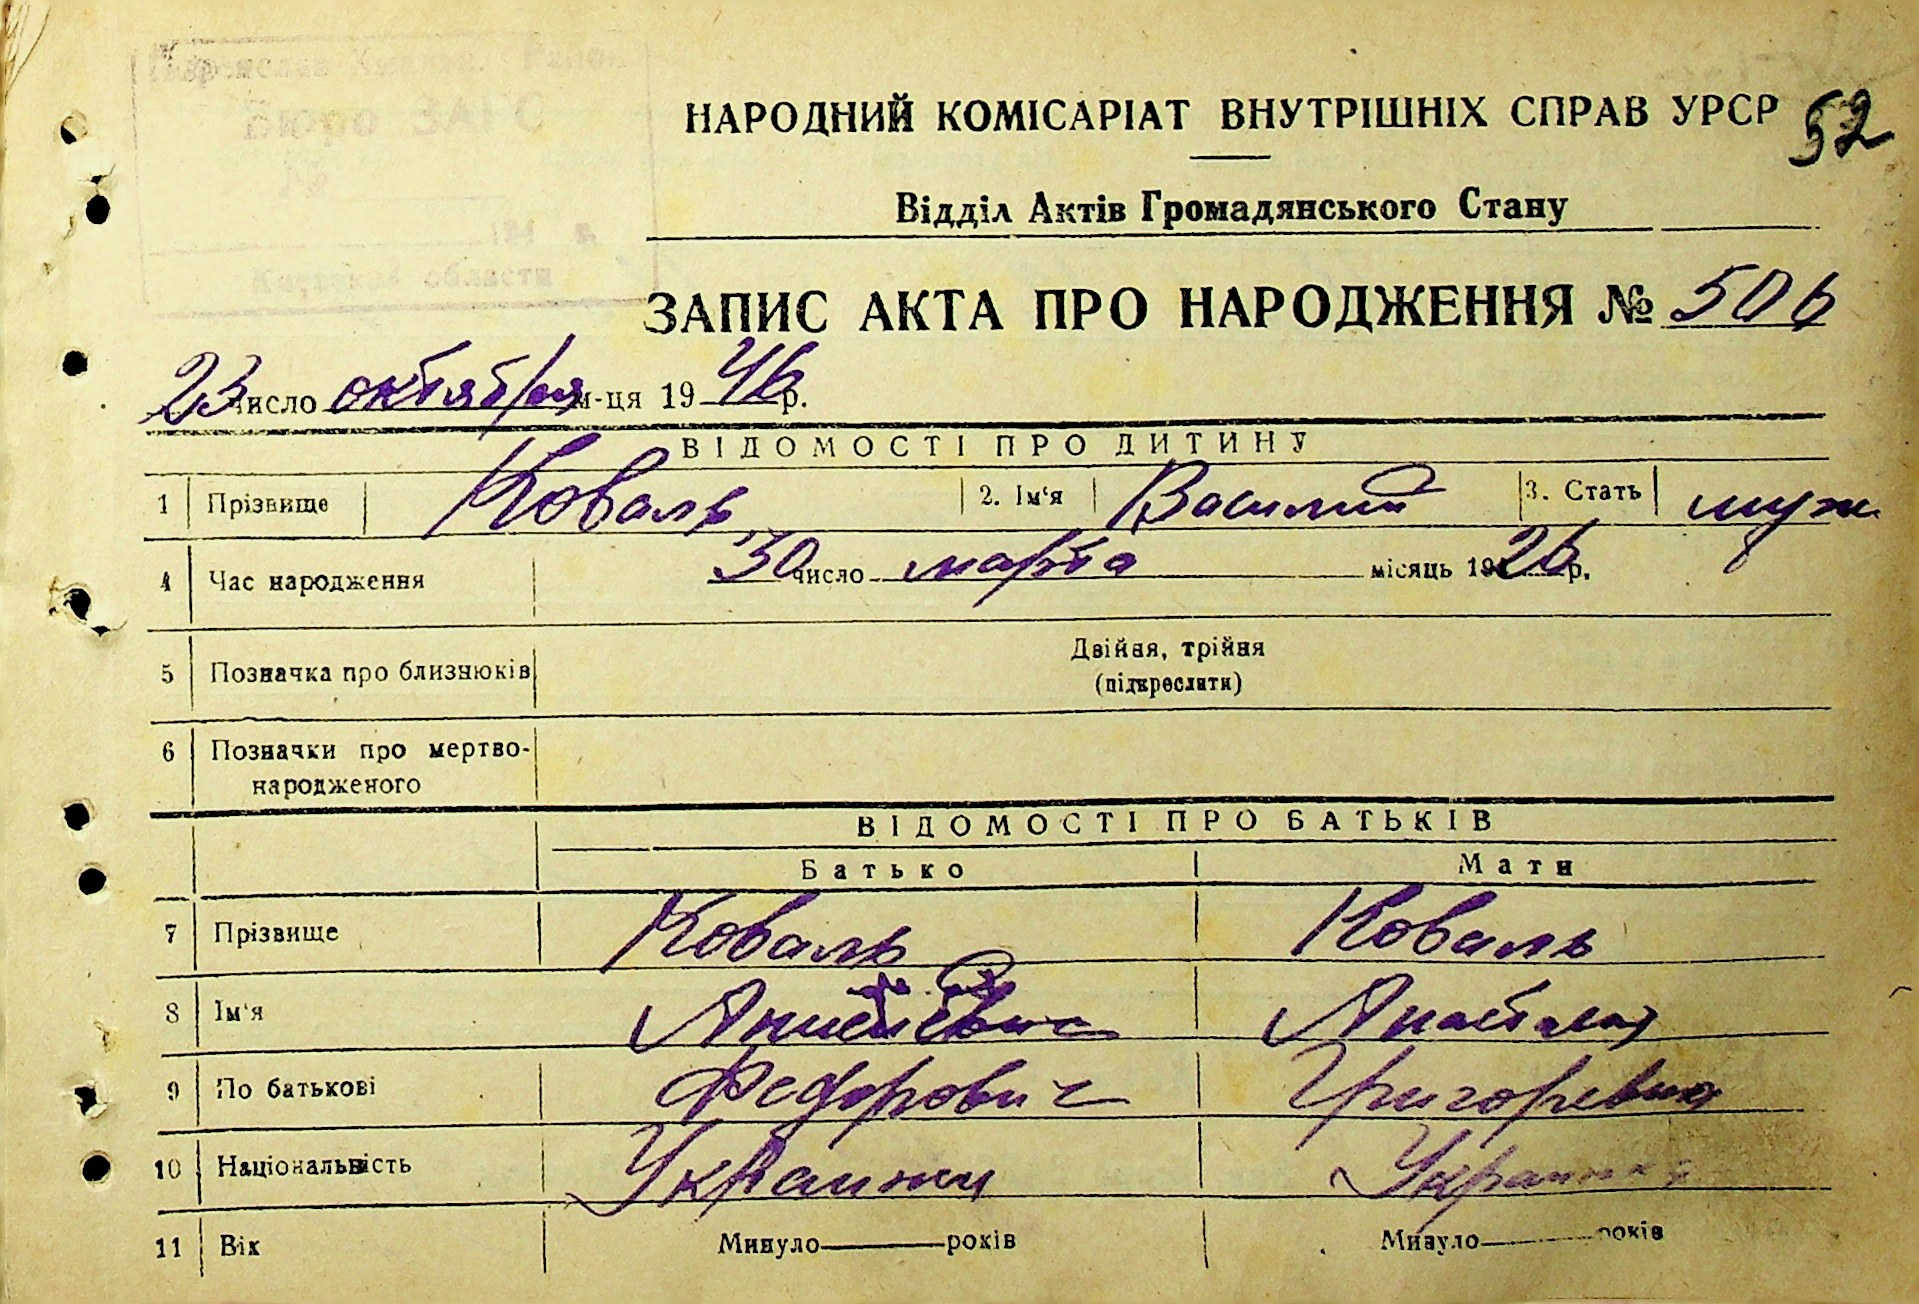 НАРОДНИЙ КОМІСАРІАТ ВНУТРІШНІХ СПРАВ УРСР 52
Відділ Актів Громадянського Стану
ЗАПИС АКТА ПРО НАРОДЖЕННЯ № 506
23 число октября м-ця 1946 р.
ВІДОМОСТІ ПРО ДИТИНУ
1 Прізвище Коваль 2. Ім'я Василий 3. Стать муж
4 Час народження 30 число марта місяць 1926 р.
5 Позначка про близнюків Двійня, трійня
(підкреслити)
6 Позначки про мертво-
народженого
ВІДОМОСТІ ПРО БАТЬКІВ
Батько Мати
7 Прізвище Коваль Коваль
8 Ім'я Анастасия
9 По батькові Федорович Григоревна
10 Національність Украинец Украинка
11 Вік Минуло років Минуло років